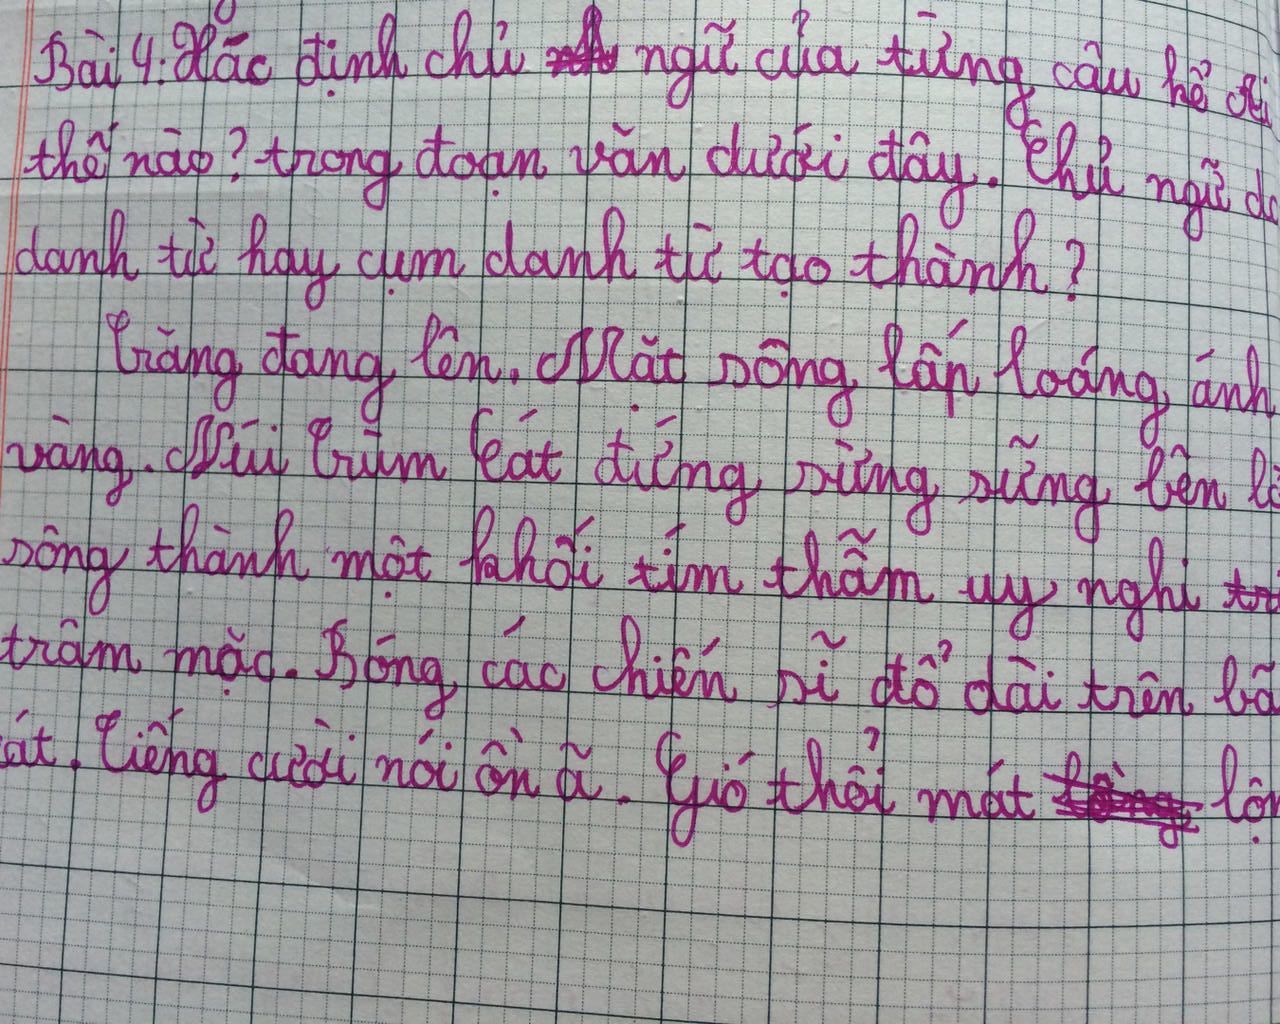 Bài 4: Xác định chủ ngữ của từng câu kể
thế nào? trong đoạn văn dưới đây. Chủ ngữ do
danh từ hay cụm danh từ tạo thành?
Trăng đang lên. Mặt sông lấp loáng ánh
vàng. Núi Trùm Cát đứng sừng sững bên
sông thành một khối tím thẫm uy nghi
trầm mặc. Bóng các chiến sĩ đổ dài trên
át. Tiếng cười nói ồn ã. Gió thổi mát